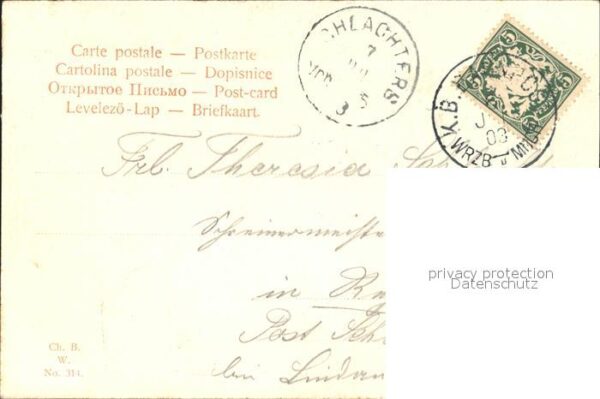 Carte postale — Postkarte
Cartolina postale — Dopisnice
Открытое Письмо — Post-card
Levelező-Lap — Briefkaart.
SCHLACHTERS
7
3
5
K.B.
03
WRZB
5
5
Frl. Theresia
Schreinermeister
in
Post Sch
bei Lindau
privacy protection
Datenschutz
Ch. B.
W.
No. 314.